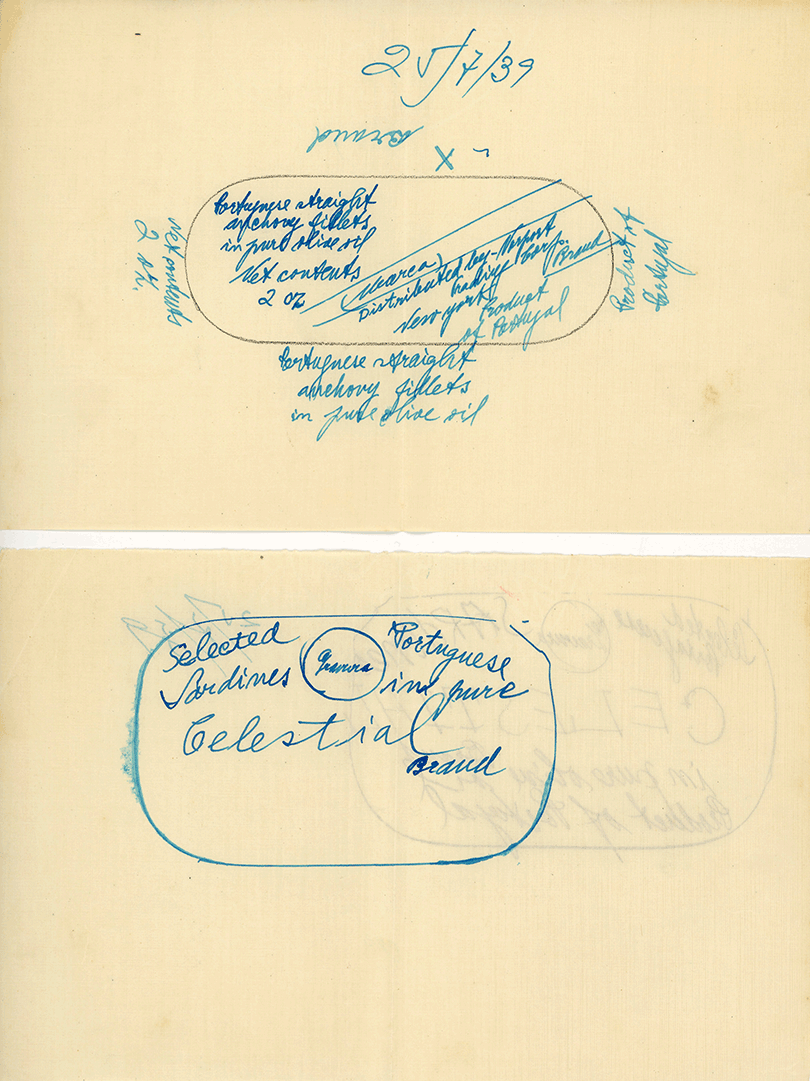 25/7/39
Brand
X
Portuguese straight
anchovy fillets
in pure olive oil
Net contents
2 oz
(Marca)
Brand
Distributed by-
Trading Corp.
New york
Product
of Portugal
Net contents
2 oz.
Product of
Portugal
Portuguese straight
anchovy fillets
in pure olive oil
Selected
Portuguese
Sardines
in pure
Celestial
Brand
25/7/39
CELESTIAL
Product of Portugal